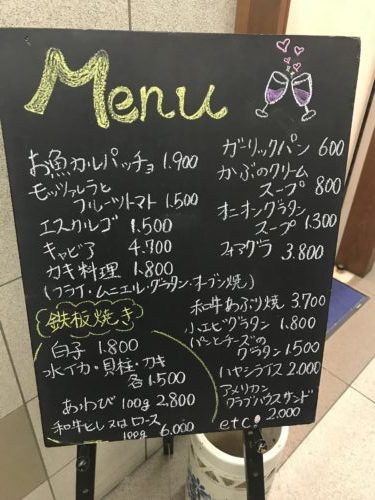 Menu
お魚カルパッチョ 1.900
モッツァレラと
フルーツトマト 1.500
エスカルゴ 1.500
キャビア 4.700
カキ料理 1.800
(フライ・ムニエル・グラタン・オーブン焼)
鉄板焼き
白子 1.800
水イカ・貝柱・カキ
各1.500
あわび 100g 2,800
和牛ヒレ又はロース
100g 6,000
ガーリックパン 600
かぶのクリーム
スープ 800
オニオングラタン
スープ 1.300
フォアグラ 3.800
和牛あぶり焼 3.700
小エビグラタン 1.800
パンとチーズの
グラタン 1.500
ハヤシライス 2.000
アメリカン
クラブハウスサンド
2.000
etc!